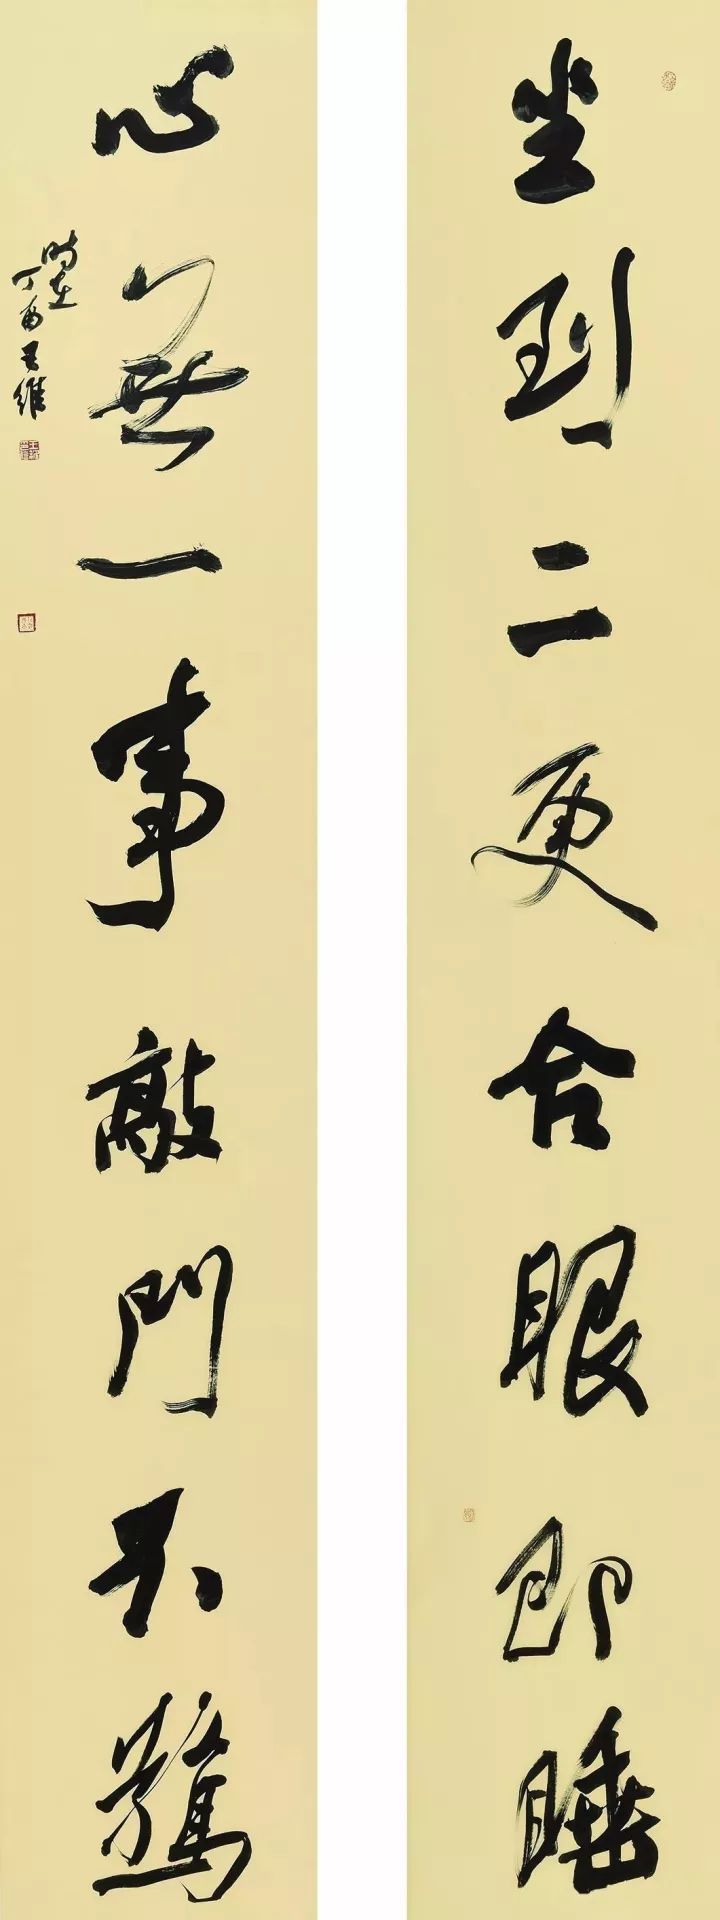 坐到二更合眼即睡
心無一事敲門不驚
時在
丁酉王維